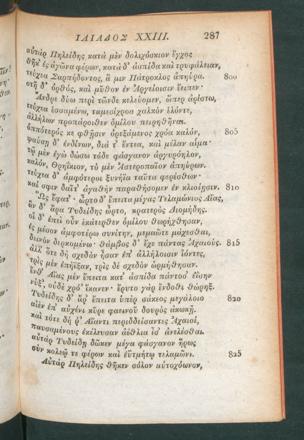 ΙΛΙΑΔΟΣ XXIII. 287
αὐτὰρ Πηλείδης κατὰ μὲν δολιχόσκιον ἔγχος
θῆκ' ἐς ἀγῶνα φέρων, κατὰ δ' ἀσπίδα καὶ τρυφάλειαν,
τεύχεα Σαρπήδοντος, ἅ μιν Πάτροκλος ἀπηύρα. 800
στῆ δ' ὀρθὸς, καὶ μῦθον ἐν Ἀργείοισιν ἔειπεν·
Ἄνδρε δύω περὶ τῶνδε κελεύομεν, ὥπερ ἀρίστω,
τεύχεα ἑσσαμένω, ταμεσίχροα χαλκὸν ἑλόντε,
ἀλλήλων προπάροιθεν ὁμίλου πειρηθῆναι.
ὁππότερός κε φθῇσιν ὀρεξάμενος χρόα καλόν, 805
ψαύσῃ δ' ἐνδίνων, διά τ' ἔντεα, καὶ μέλαν αἷμα·
τῷ μὲν ἐγὼ δώσω τόδε φάσγανον ἀργυρόηλον,
καλόν, Θρηΐκιον, τὸ μὲν Ἀστεροπαῖον ἀπηύρων.
τεύχεα δ' ἀμφότεροι ξυνήϊα ταῦτα φερέσθων·
καί σφιν δαῖτ' ἀγαθὴν παραθήσομεν ἐν κλισίῃσιν. 810
Ὣς ἔφατ'· ὦρτο δ' ἔπειτα μέγας Τελαμώνιος Αἴας,
ἂν δ' ἄρα Τυδείδης ὦρτο, κρατερὸς Διομήδης.
οἱ δ' ἐπεὶ οὖν ἑκάτερθεν ὁμίλου θωρήχθησαν,
ἐς μέσον ἀμφοτέρω συνίτην, μεμαῶτε μάχεσθαι,
δεινὸν δερκομένω· θάμβος δ' ἔχε πάντας Ἀχαιούς. 815
ἀλλ' ὅτε δὴ σχεδὸν ἦσαν ἐπ' ἀλλήλοισιν ἰόντες,
τρὶς μὲν ἐπήϊξαν, τρὶς δὲ σχεδὸν ὡρμήθησαν.
ἔνθ' Αἴας μὲν ἔπειτα κατ' ἀσπίδα πάντοσ' ἐΐσην
νύξ', οὐδὲ χρό' ἵκανεν· ἔρυτο γὰρ ἔνδοθι θώρηξ.
Τυδείδης δ' ἂρ ἔπειτα ὑπὲρ σάκεος μεγάλοιο 820
αἰὲν ἐπ' αὐχένι κῦρε φαεινοῦ δουρὸς ἀκωκῇ.
καὶ τότε δή ῥ' Αἴαντι περιδδείσαντες Ἀχαιοί,
παυσαμένους ἐκέλευσαν ἀέθλια ἶσ' ἀνελέσθαι.
αὐτὰρ Τυδείδῃ δῶκεν μέγα φάσγανον ἥρως
σὺν κολεῷ τε φέρων καὶ ἐϋτμήτῳ τελαμῶνι. 825
Αὐτὰρ Πηλείδης θῆκεν σόλον αὐτοχόωνον,